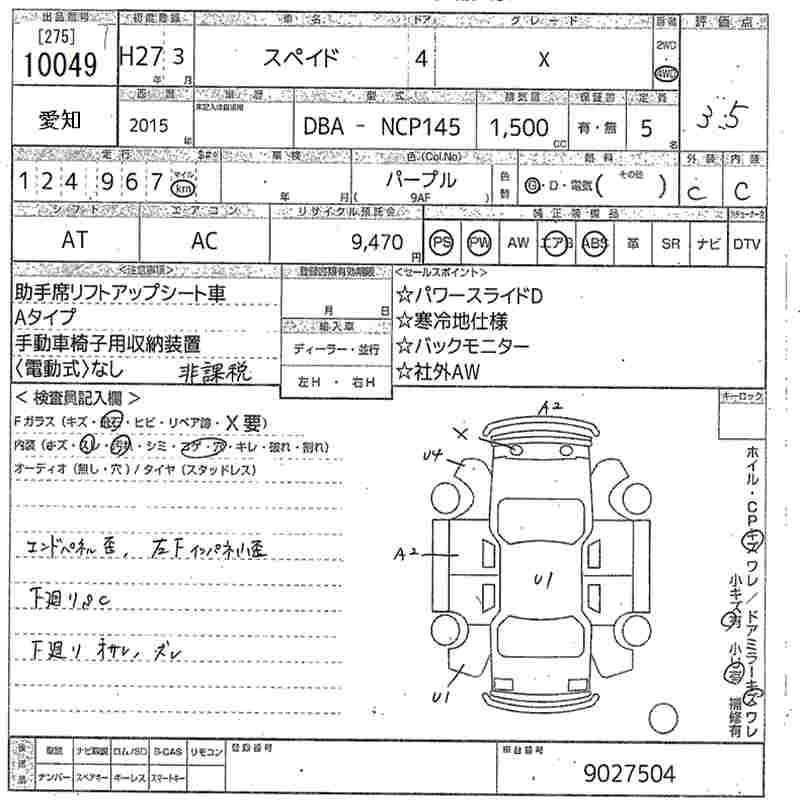 出品番号 初度登録 車名 ドア グレード 評価点
[275]
10049 H27 年 3 月 スペイド 4 X 2WD 4WD
3.5
愛知
西暦 車歴 型式 排気量 保証書 定員
2015 年 DBA - NCP145 1,500 CC 有・無 5 名
走行 車検 色(Col.No) 燃料 外装 内装
124,967 マイル km 年 月 パープル 9AF 色替 G・D・電気( その他 ) C C
シフト エアコン リサイクル預託金 純正装備品
AT AC 9,470 円 PS PW AW エアB ABS 革 SR ナビ DTV
<注意事項>
助手席リフトアップシート車
Aタイプ
手動車椅子用収納装置
〈電動式〉なし 非課税
登録書類有効期限
月 日
輸入車
ディーラー・並行
左H・右H
<セールスポイント>
☆パワースライドD
☆寒冷地仕様
☆バックモニター
☆社外AW
< 検査員記入欄 >
Fガラス(キズ・飛石・ヒビ・リペア跡・X要)
内装(キズ・スレ・汚れ・シミ・コゲ・穴・キレ・破れ・割れ)
オーディオ(無し・穴)/タイヤ(スタッドレス)
エンドパネル歪、左Fインパネル歪
下廻りSC
下廻りオサレ、ズレ
キーロック
A2
X
U4
A2
U1
U1
ホイル・CPキズ ワレ/ドアミラーキズ ワレ
小キズ有 小凹有 補修有
後送品 取説 ナビ取説 ロム/SD B-CAS リモコン
ナンバー スペアキー キーレス スマートキー
登録番号
車台番号
9027504